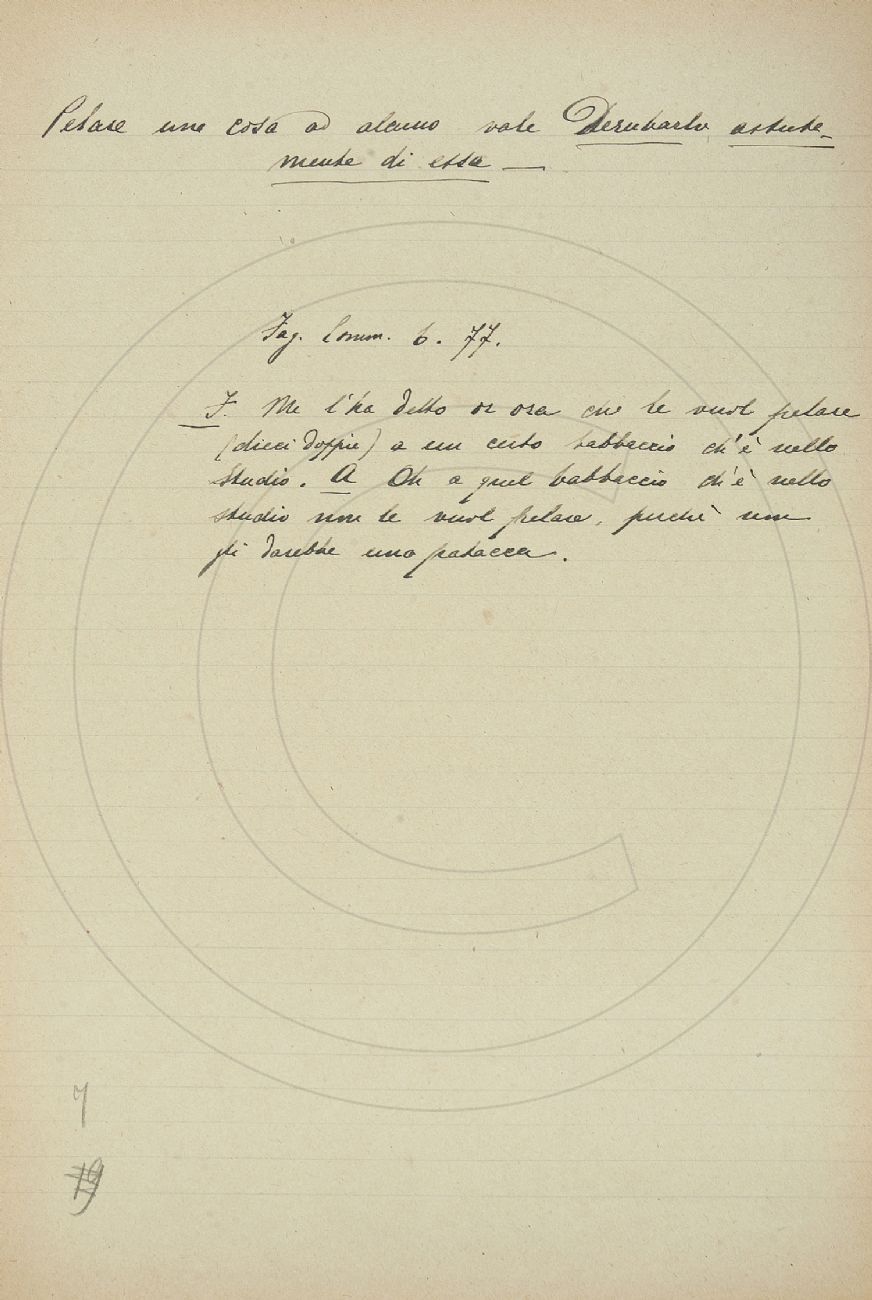 Pelare una cosa ad alcuno vale Derubarlo astuta-
mente di essa —
Fag. Comm. 6. 77.
F. Me l'ha detto or ora che le vuol pelare
(dieci doppie) a un certo babbaccio ch'è nello
studio. A Oh a quel babbaccio ch'è nello
studio non le vuol pelare, perchè non
gli darebbe una patacca.
7